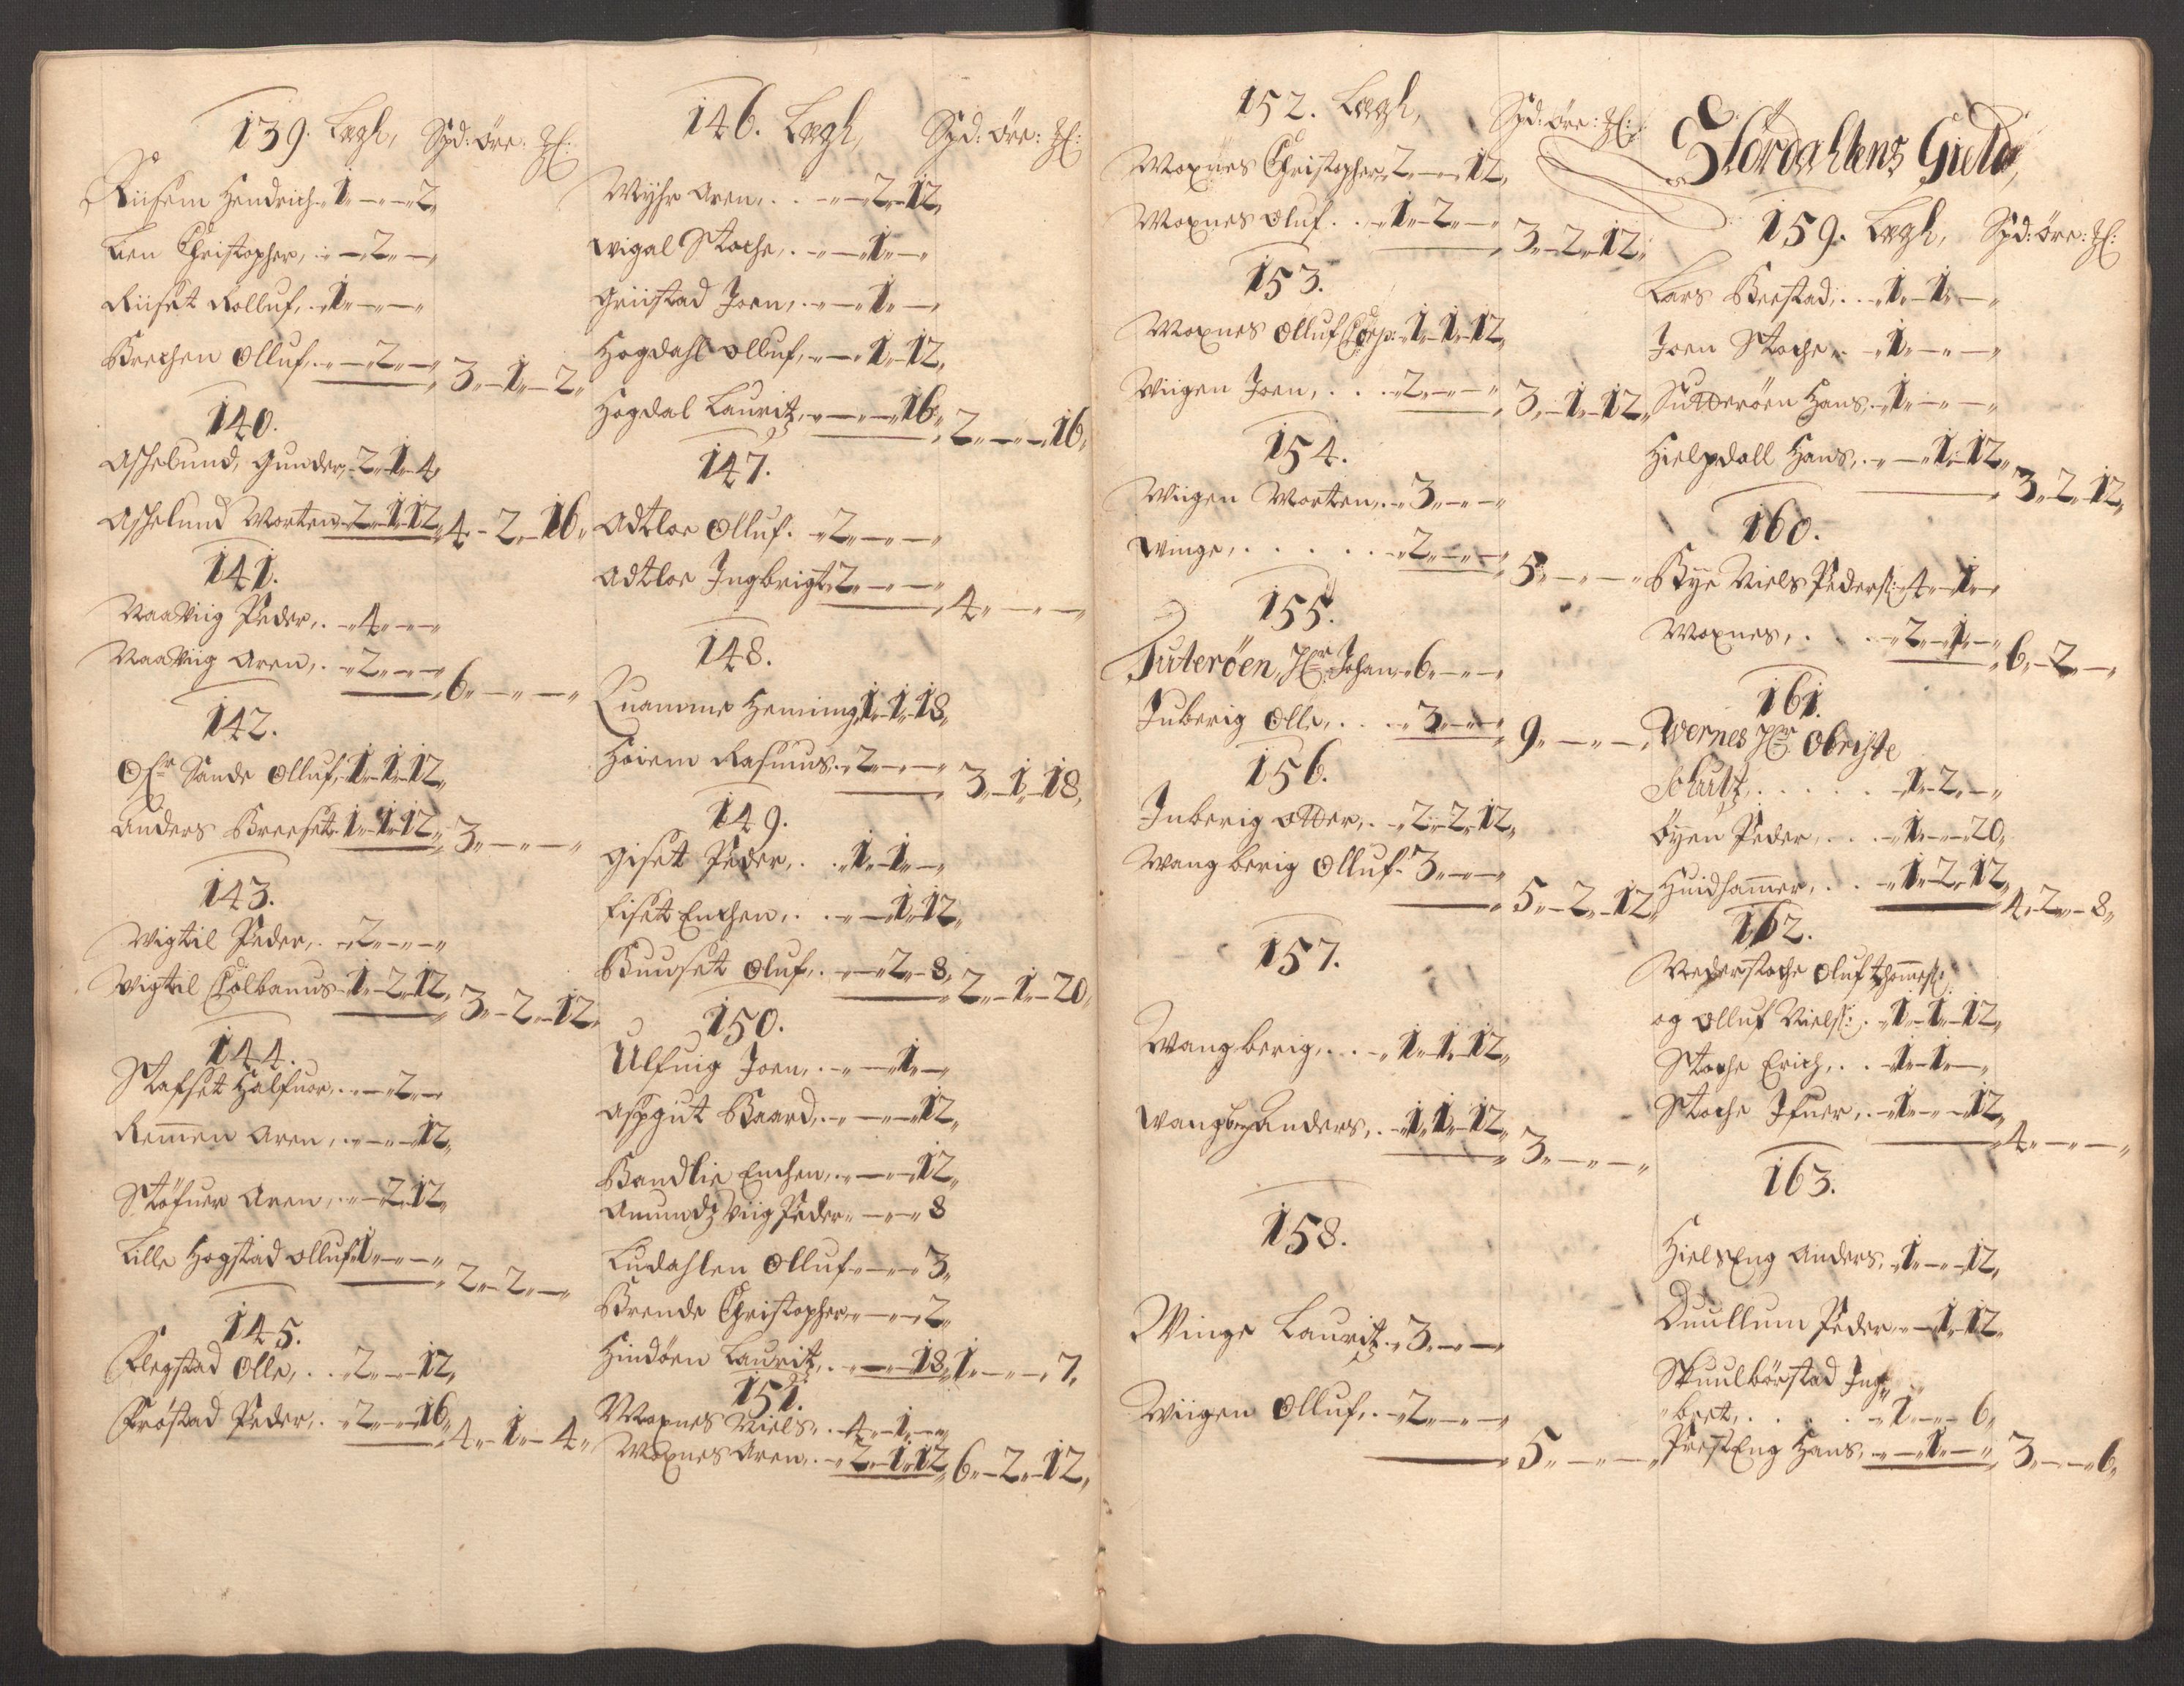 139. Legh, Spd: öre: ꝑ:
Riisem Hendrich 1 — 2
Lien Christopher, — 2 —
Riiset Rolluf, 1 — —
Brechen Olluf, — 2 — 3 - 1 - 2
140.
Aschelund, Gunder, 2 - 1 - 4
Aschelund Morten 2 - 1 - 12 4 - 2 - 16
141.
Naaviig Peder, 4 — —
Naaviig Aren, 2 — — 6 — —
142.
Ofr Sande Olluf, 1 - 1 - 12
Anders Breeset 1 - 1 - 12 3 — —
143.
Vigtil Peder, 2 — —
Vigtel Colbanus 1 - 2 - 12 3 - 2 - 12
144.
Stafset Halfuor, — 2 —
Remen Aren, — — 12
Stöfner Aren, — 2 - 12
Lille Hogstad Olluf 1 — — 2 - 2 —
145.
Flegstad Olle, 2 — 12
Fröstad Peder, 2 — 16 4 - 1 - 4
146. Legh, Spd: öre: ꝑ:
Myhr Aren, — 2 - 12
Vigal Stoche, — 1 —
Griistad Joen, — 1 —
Hogdahl Olluf, — 1 - 12
Hogdal Lauritz, — — 16 2 — 16
147.
Adtloe Olluf. 2 — —
Adtloe Ingbrigt 2 — — 4 — —
148.
Quamme Heming 1 - 1 - 18
Höiem Rasmus 2 — — 3 - 1 - 18
149.
Giset Peder, 1 - 1 —
Liset Enchen, — 1 - 12
Buuset Oluf, — 2 - 8 2 - 1 - 20
150.
Ulfuig Joen, — 1 —
Aspgut Baard, — — 12
Bandlie Enchen, — — 12
Amundz Viig Peder — — 8
Ludahlen Olluf — — 3
Brende Christopher — — 2
Hindöen Lauritz, — — 18 1 — 7
151.
Moxnes Niels, 4 - 1 —
Moxnes Aren, 2 - 1 - 12 6 - 2 - 12
152. Legh, Spd: öre: ꝑ:
Moxnes Christopher 2 — 12
Moxnes Oluf 1 - 2 — 3 - 2 - 12
153.
Moxnes Olluf 1 - 1 - 12
Viigen Joen, 2 — — 3 - 1 - 12
154.
Viigen Morten, 3 — —
Vinge, 2 — — 5 — —
155.
Tuteröen, Hr Johan 6 — —
Juberig Olle, 3 — — 9 — —
156.
Juberig Otter, 2 - 2 - 12
Wang berig Olluf 3 — — 5 - 2 - 12
157.
Wang berig, 1 - 1 - 12
Wangbrg Anders, 1 - 1 - 12 3 — —
158.
Vinge Lauritz 3 — —
Viigen Olluf, 2 — — 5 — —
Stördahlens Gield,
159. Legh, Spd: öre: ꝑ:
Lars Beestad, 1 - 1 —
Joen Stoche, 1 — —
Sutteröen Hans, 1 — —
Hielpdall Hans, — 1 - 12 3 - 2 - 12
160.
Bye Niels Peders: 4 - 1 —
Moxnes, 2 - 1 — 6 - 2 —
161.
Wernes Hr Obriste
Schultz, 1 - 2 —
Öyen Peder, 1 — 20
Huidhammer, 1 - 2 - 12 4 - 2 - 8
162.
Nederstoche Oluf Thommes:
og Olluf Niels: 1 - 1 - 12
Stoche Erich, 1 - 1 —
Stoche Ifuer, 1 — 12 4 — —
163.
Hielseng Anders, 1 — 12
Duullum Peder, — 1 - 12
Skuulbörstad Ing
bret, 1 — 6
Presteng Hans, — 1 — 3 — 6